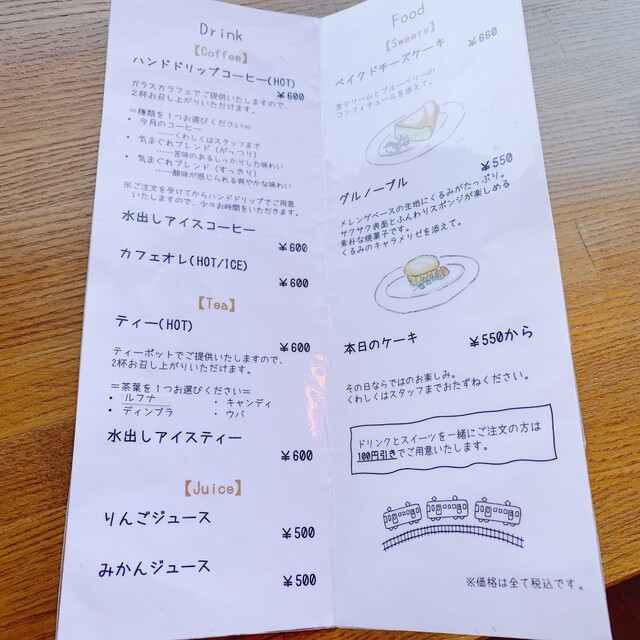 Drink
【Coffee】
ハンドドリップコーヒー(HOT)
¥600
ガラスカラフェでご提供いたしますので、
2杯お召し上がりいただけます。
=種類を1つお選びください=
・ 今月のコーヒー
……くわしくはスタッフまで
・ 気まぐれブレンド(がっつり)
……苦味のあるしっかりした味わい
・ 気まぐれブレンド(すっきり)
……酸味が感じられる爽やかな味わい
※ご注文を受けてからハンドドリップでご用意
いたしますので、少々お時間をいただきます。
水出しアイスコーヒー
¥600
カフェオレ(HOT/ICE)
¥600
【Tea】
ティー(HOT)
¥600
ティーポットでご提供いたしますので、
2杯お召し上がりいただけます。
=茶葉を1つお選びください=
・ ルフナ ・ キャンディ
・ ディンブラ ・ ウバ
水出しアイスティー
¥600
【Juice】
りんごジュース
¥500
みかんジュース
¥500
Food
【Sweets】
ベイクドチーズケーキ
¥660
生クリームとブルーベリーの
コンフィチュールを添えて。
グルノーブル
¥550
メレンゲベースの生地にくるみがたっぷり。
サクサク表面とふんわりスポンジが楽しめる
素朴な焼菓子です。
くるみのキャラメリゼを添えて。
本日のケーキ
¥550から
その日ならではのお楽しみ。
くわしくはスタッフまでおたずねください。
ドリンクとスイーツを一緒にご注文の方は
100円引きでご用意いたします。
※価格は全て税込です。